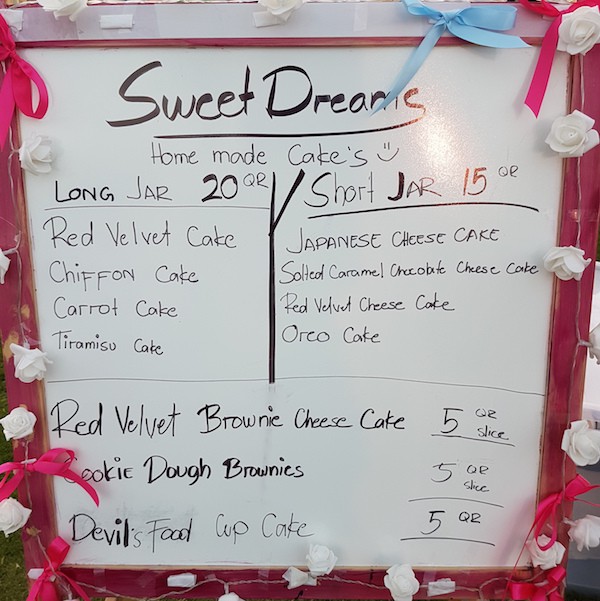 Sweet Dreams
Home made Cake's
LONG JAR 20 QR
Red Velvet Cake
Chiffon Cake
Carrot Cake
Tiramisu Cake
Short JAR 15 QR
JAPANESE CHEESE CAKE
Salted Caramel Chocolate Cheese Cake
Red Velvet Cheese Cake
Oreo Cake
Red Velvet Brownie Cheese Cake 5 QR slice
Cookie Dough Brownies 5 QR slice
Devil's Food Cup Cake 5 QR